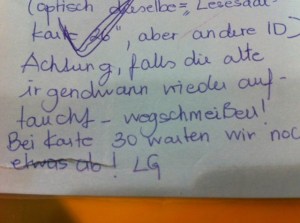 (optisch dasselbe = „Lesesaal-
karte 30", aber andere ID)
Achtung, falls die alte
irgendwann wieder auf-
taucht - wegschmeißen!
Bei Karte 30 warten wir noc
etwas ab! LG